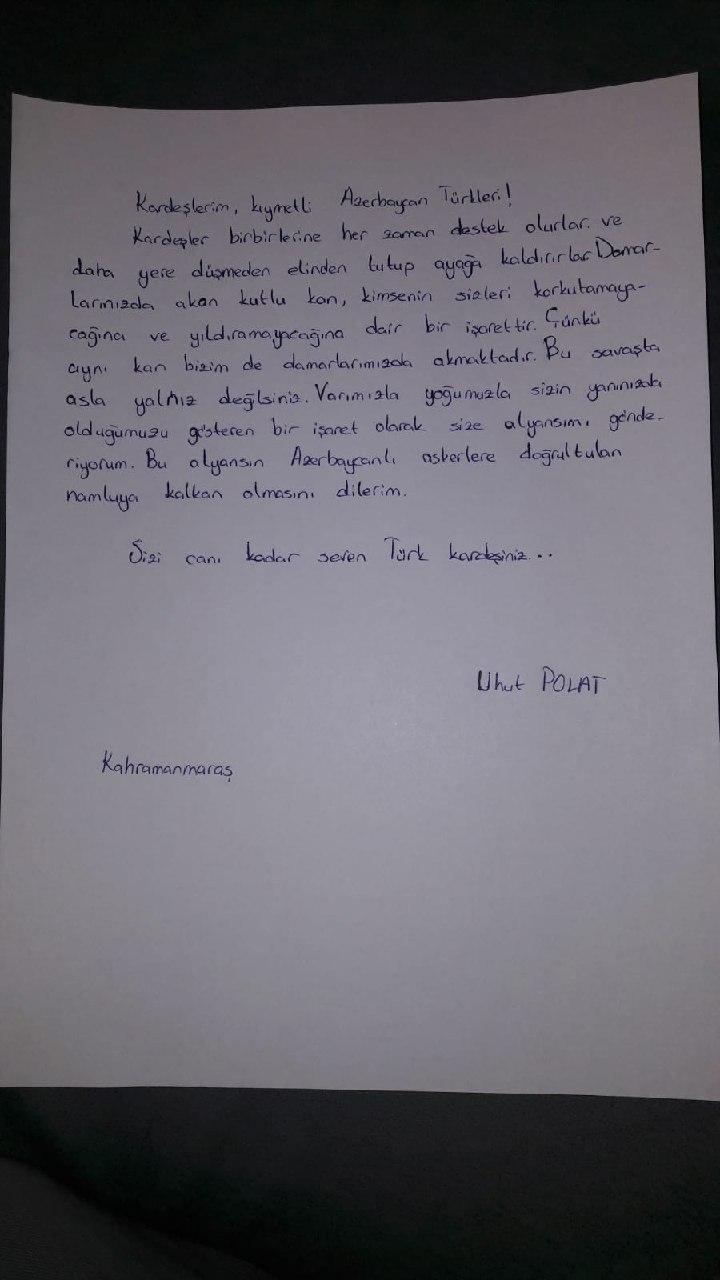 Kardeşlerim, kıymetli Azerbaycan Türkleri!
Kardeşler birbirlerine her zaman destek olurlar. ve
daha yere düşmeden elinden tutup ayağa kaldırırlar. Damar-
larınızda akan kutlu kan, kimsenin sizleri korkutamaya-
cağına ve yıldıramayacağına dair bir işarettir. Çünkü
aynı kan bizim de damarlarımızda akmaktadır. Bu savaşta
asla yalnız değilsiniz. Varımızla yoğumuzla sizin yanınızda
olduğumuzu gösteren bir işaret olarak size alyansımı gönde-
riyorum. Bu alyansın Azerbaycanlı askerlere doğrultulan
namluya kalkan olmasını dilerim.
Sizi canı kadar seven Türk kardeşiniz...
Uhut POLAT
Kahramanmaraş